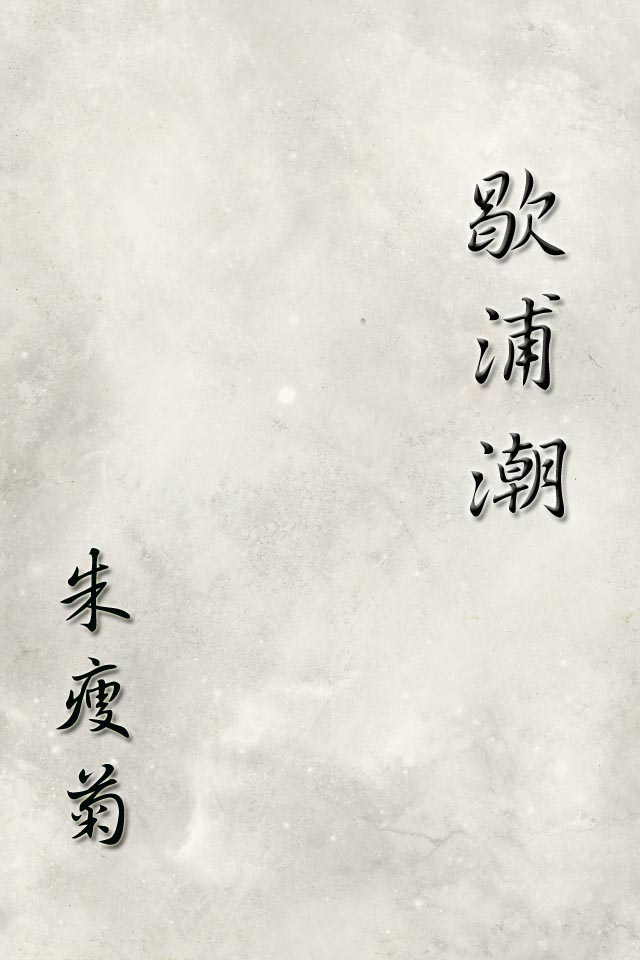 歇浦潮
朱瘦菊